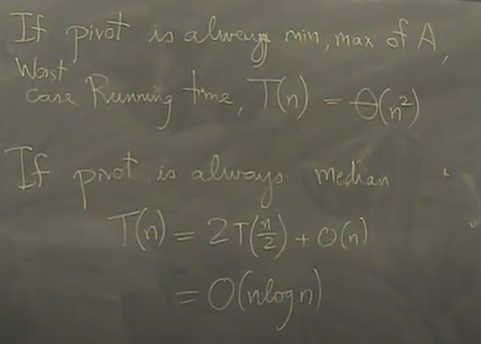 If pivot is always min, max of A,
Worst
case Running time, T(n) = Θ(n²)
If pivot is always median
T(n) = 2T(n/2) + O(n)
= O(nlogn)